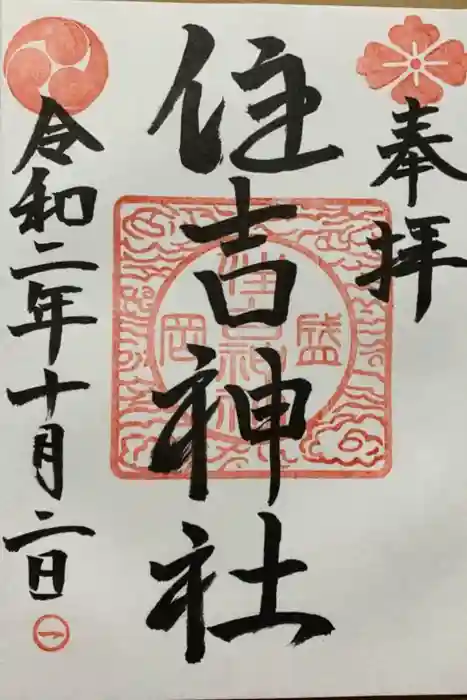 奉拝
住吉神社
盛岡
住吉神社
令和二年十月二日
一